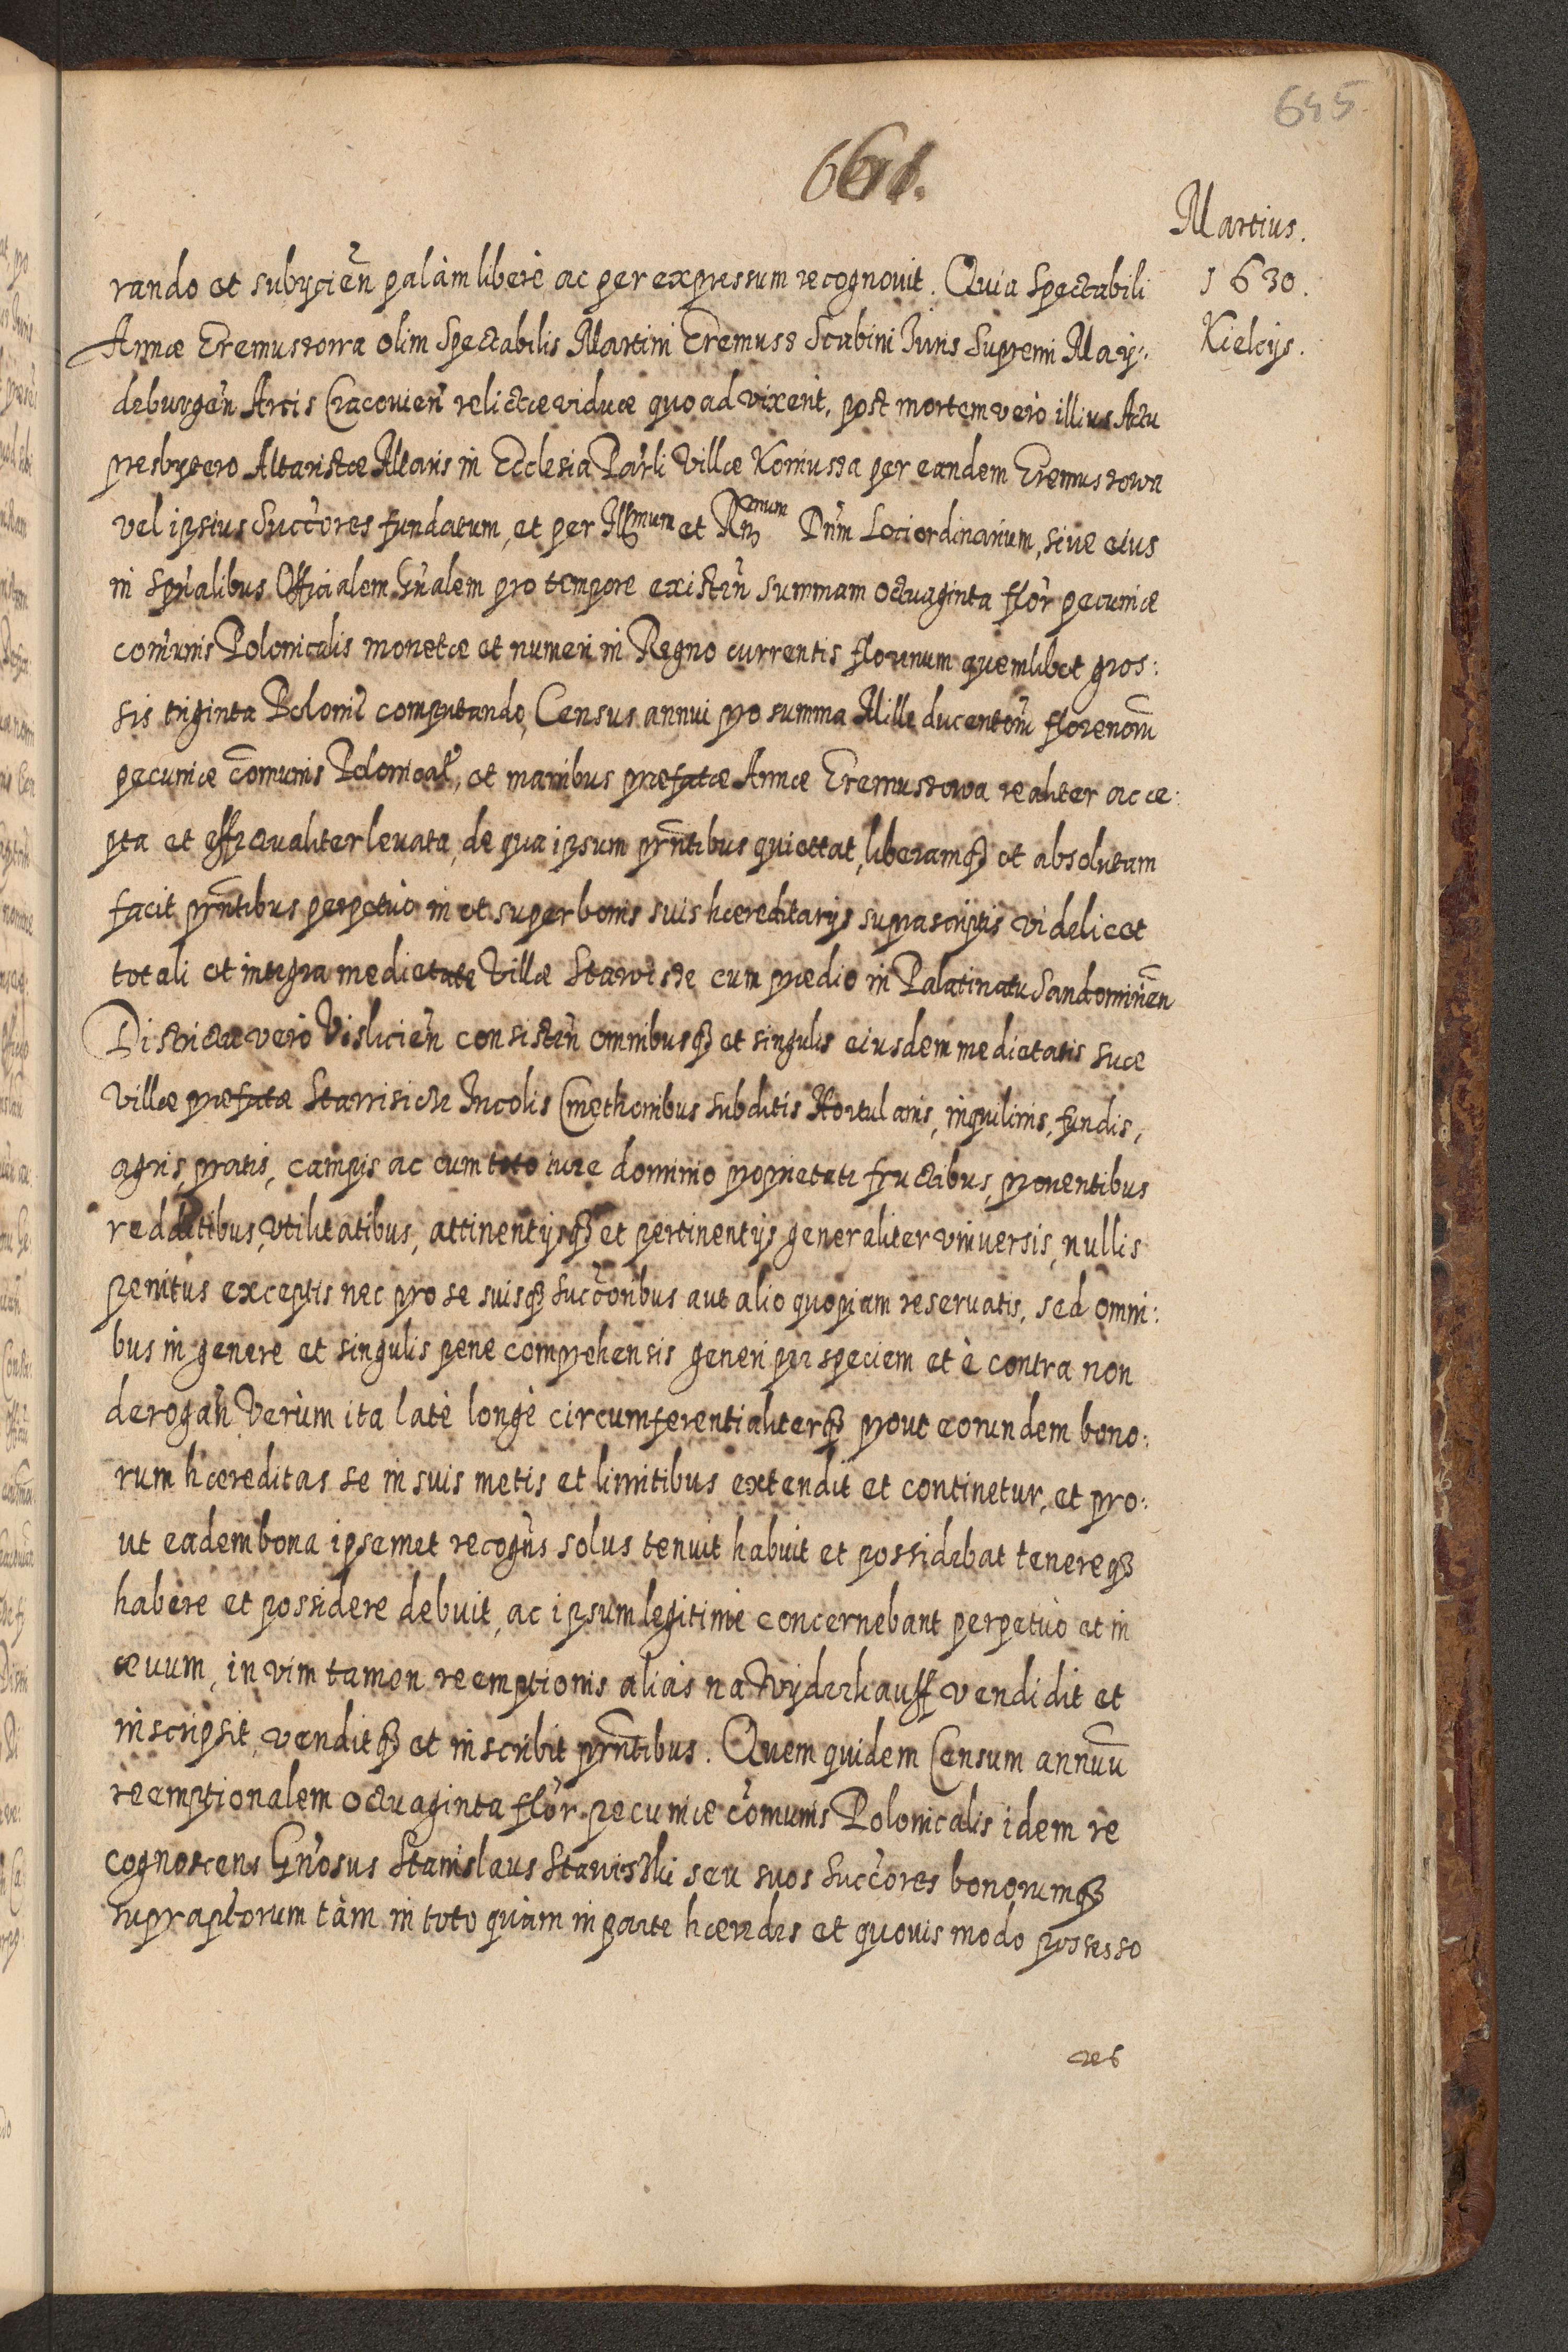 645
661.
Martius.
1630.
Kielcijs.
rando et subijcień palàm liberè ac per expressum recognouit. Quia Spectabili
Annæ Eremuszowa olim Spectabilis Martini Eremusz Scabini Iuris Supremi May:
deburgeń Arcis Cracouień relictæ viduæ quoad vixerit, post mortem verò illius Actu
presbytero Altaristæ Altaris in Ecclesia Parli Villæ Korniussa per eandem Eremuszowa
vel ipsius Succores fundatum, et per Illmum et Rndmum Dnm Loci ordinarium, siue eius
in Spnalibus Officialem Gnalem pro tempore existeń summam octuaginta flor pecuniæ
comunis Polonicalis monetæ et numeri in Regno currentis florenum quemlibet gros:
sis triginta Polonic computando, Census annui pro summa Mille ducentorū florenorū
pecuniæ cōmunis Polonical, et manibus præfatæ Annæ Eremuszowa realiter acce:
pta et effectualiter leuata, de qua ipsum prntibus quiettat, liberamq3 et absolutam
facit prntibus perpetuò in et super bonis suis hæreditarijs suprascriptis videlicet
totali et integra medietate Villæ Stawisze cum prædio in Palatinatu Sandomirień
Districtu verò Vislicień consisteń omnibusq3 et singulis eiusdem medietatis suæ
Villæ præfatæ Incolis Cmethonibus subditis Hortulanis, inquilinis, fundis,
agris, pratis, campis ac cum toto iure dominio proprietate fructibus, prouentibus
redditibus, vtilitatibus, attinentijsq3 et pertinentijs generaliter vniuersis, nullis
penitus exceptis nec pro se suisq3 succoribus aut alio quopiam reseruatis, sed omni:
bus in genere et singulis pene comprehensis generi per speciem et è contra non
derogań Verùm ita latè longè circumferentialiterq3 prout eorundem bono:
rum hæreditas se in suis metis et limitibus extendit et continetur, et pro:
ut eadem bona ipsemet recogns solus tenuit habuit et possidebat tenereq3
habere et possidere debuit, ac ipsum legitimè concernebant perpetuò et in
æuum, in vim tamen reemptionis aliàs na Wyderkauff vendidit et
inscripsit, venditq3 et inscribit prntibus. Quem quidem Censum annuū
reemptionalem octuaginta flor pecuniæ comunis Polonicalis idem re
cognoscens Gnosus Stanislaus Stawiski seu suos Succores bonorumq3
supraptorum tàm in toto quàm in parte hæredes et quouis modo possesso
res